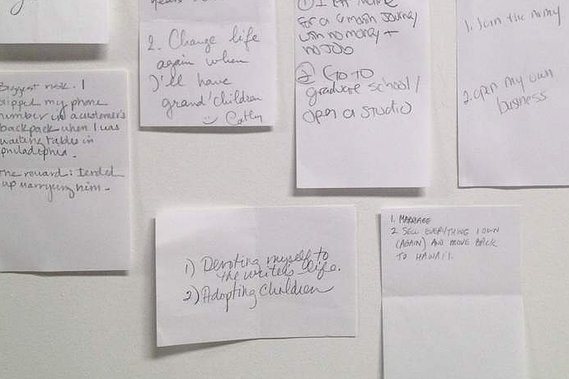 2. Change life
again when
I'll have
grand'children
Cathy
for a
journey
with no money +
no JOB
② GO TO
graduate school /
open a studio
1. Join the Army
2. open my own
business
Biggest risk. I
slipped my phone
number in a customer's
backpack when I was
waiting tables in
philadelphia.
The reward: I ended
up marrying him.
1) Devoting myself to
the writer's life.
2) Adopting Children
1. MARRIAGE
2. SELL EVERYTHING I OWN
(AGAIN) AND MOVE BACK
TO HAWAII.